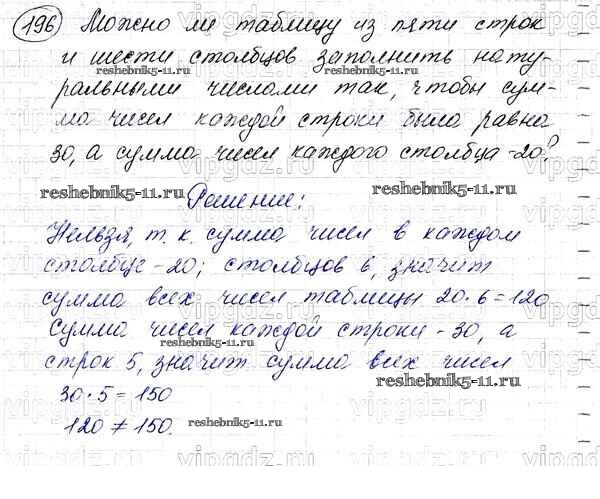 196 Можно ли таблицу из пяти строк
и шести столбцов заполнить нату-
reshebnik5-11.ru reshebnik5-11.ru
ральными числами так, чтобы сум-
ма чисел каждой строки была равна
30, а сумма чисел каждого столбца - 20?
reshebnik5-11.ru reshebnik5-11.ru
Решение:
Нельзя, т. к. сумма чисел в каждом
столбце - 20; столбцов 6, значит
сумма всех чисел таблицы 20·6=120
Сумма чисел каждой строки - 30, а
reshebnik5-11.ru
строк 5, значит сумма всех чисел
reshebnik5-11.ru
30·5=150
120≠150.
reshebnik5-11.ru
vipgdz.ru vipgdz.ru vipgdz.ru